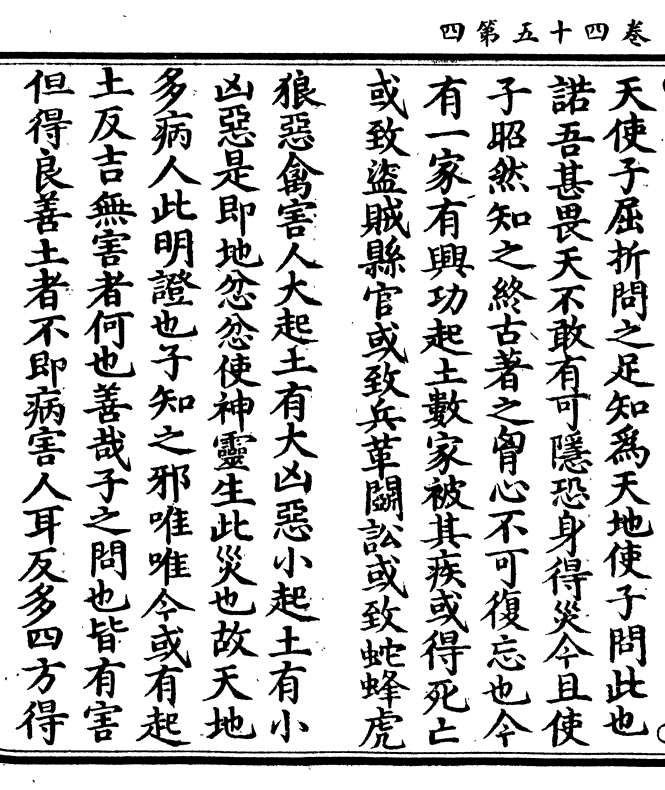 卷四十五第四
天使子屈折問之足知為天地使子問此也
諾吾甚畏天不敢有可隱恐身得災今且使
子昭然知之終古著之胷心不可復忘也今
有一家有興功起土數家被其疾或得死亡
或致盜賊縣官或致兵革鬭訟或致蛇蜂虎
狼惡禽害人大起土有大凶惡小起土有小
凶惡是即地忿忿使神靈生此災也故天地
多病人此明證也子知之邪唯唯今或有起
土反吉無害者何也善哉子之問也皆有害
但得良善土者不即病害人耳反多四方得